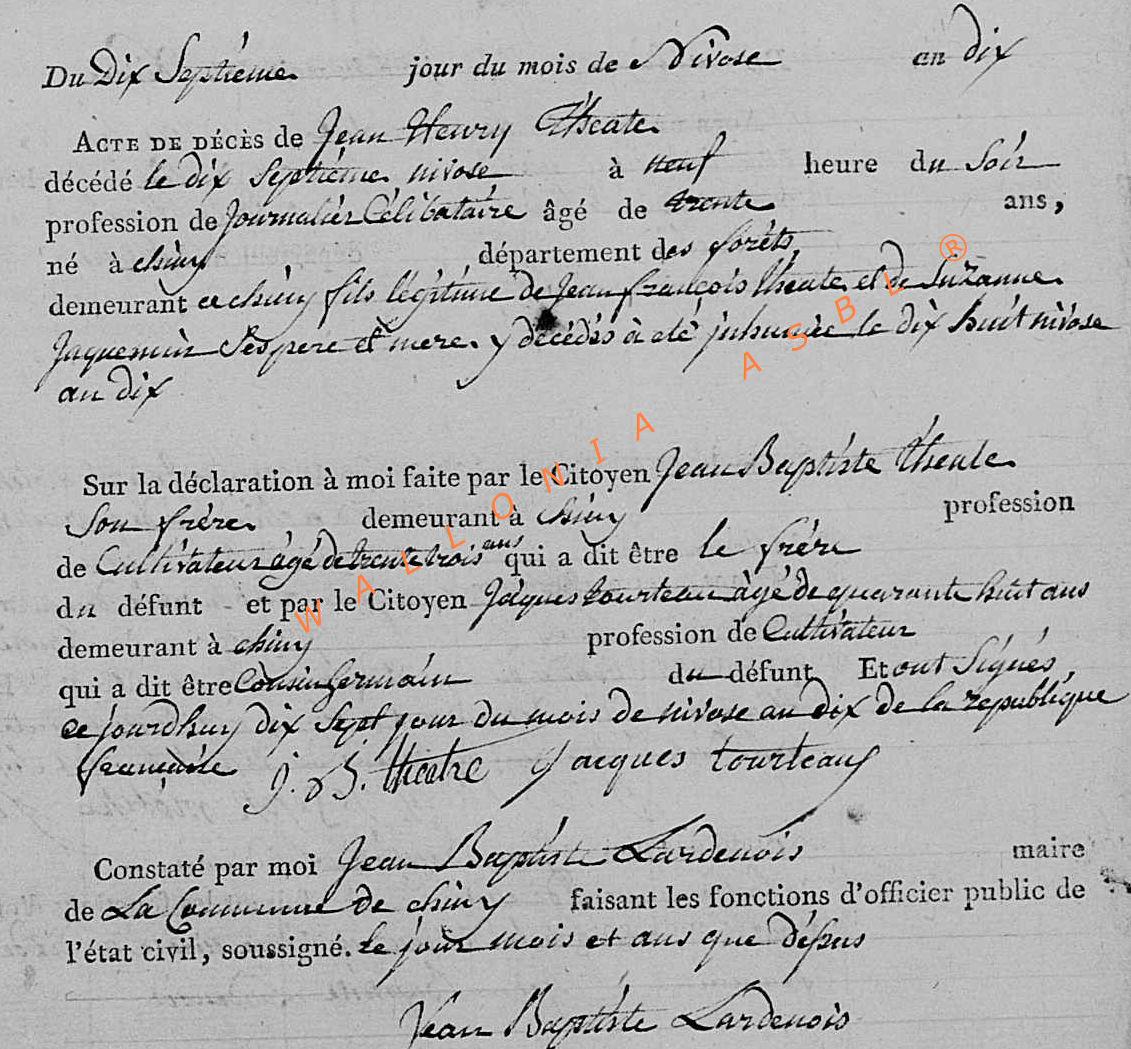 Du Dix Septiéme jour du mois de Nivose an dix
ACTE DE DÉCÈS de Jean Henry Théate
décédé le dix septiéme nivose à neuf heure du Soir
profession de Journaliér Célibataire âgé de trente ans,
né à chiny département des forêts,
demeurant a chiny fils légitime de Jean françois théate et de Suzanne
Jaquemin Ses pere et mere y décédés à eté inhumée le dix huit nivose
an dix
Sur la déclaration à moi faite par le Citoyen Jean Baptiste théate
Son frére demeurant à chiny profession
de Cultivateur âgé de trente trois ans qui a dit être le frére
du défunt et par le Citoyen Jâques tourteau âgé de quarante huit ans
demeurant à chiny profession de Cultivateur
qui a dit être Cousin Germain du défunt Et ont Signés
ce jourdhuy dix Sept jour du mois de nivose an dix de la republique
francaise J. B. theatre Jacques tourteaux
Constaté par moi Jean Baptiste Lardenois maire
de La Commune de chiny faisant les fonctions d'officier public de
l'état civil, soussigné. le jour mois et ans que déssus
Jean Baptiste Lardenois
WALLONIA ASBL ®